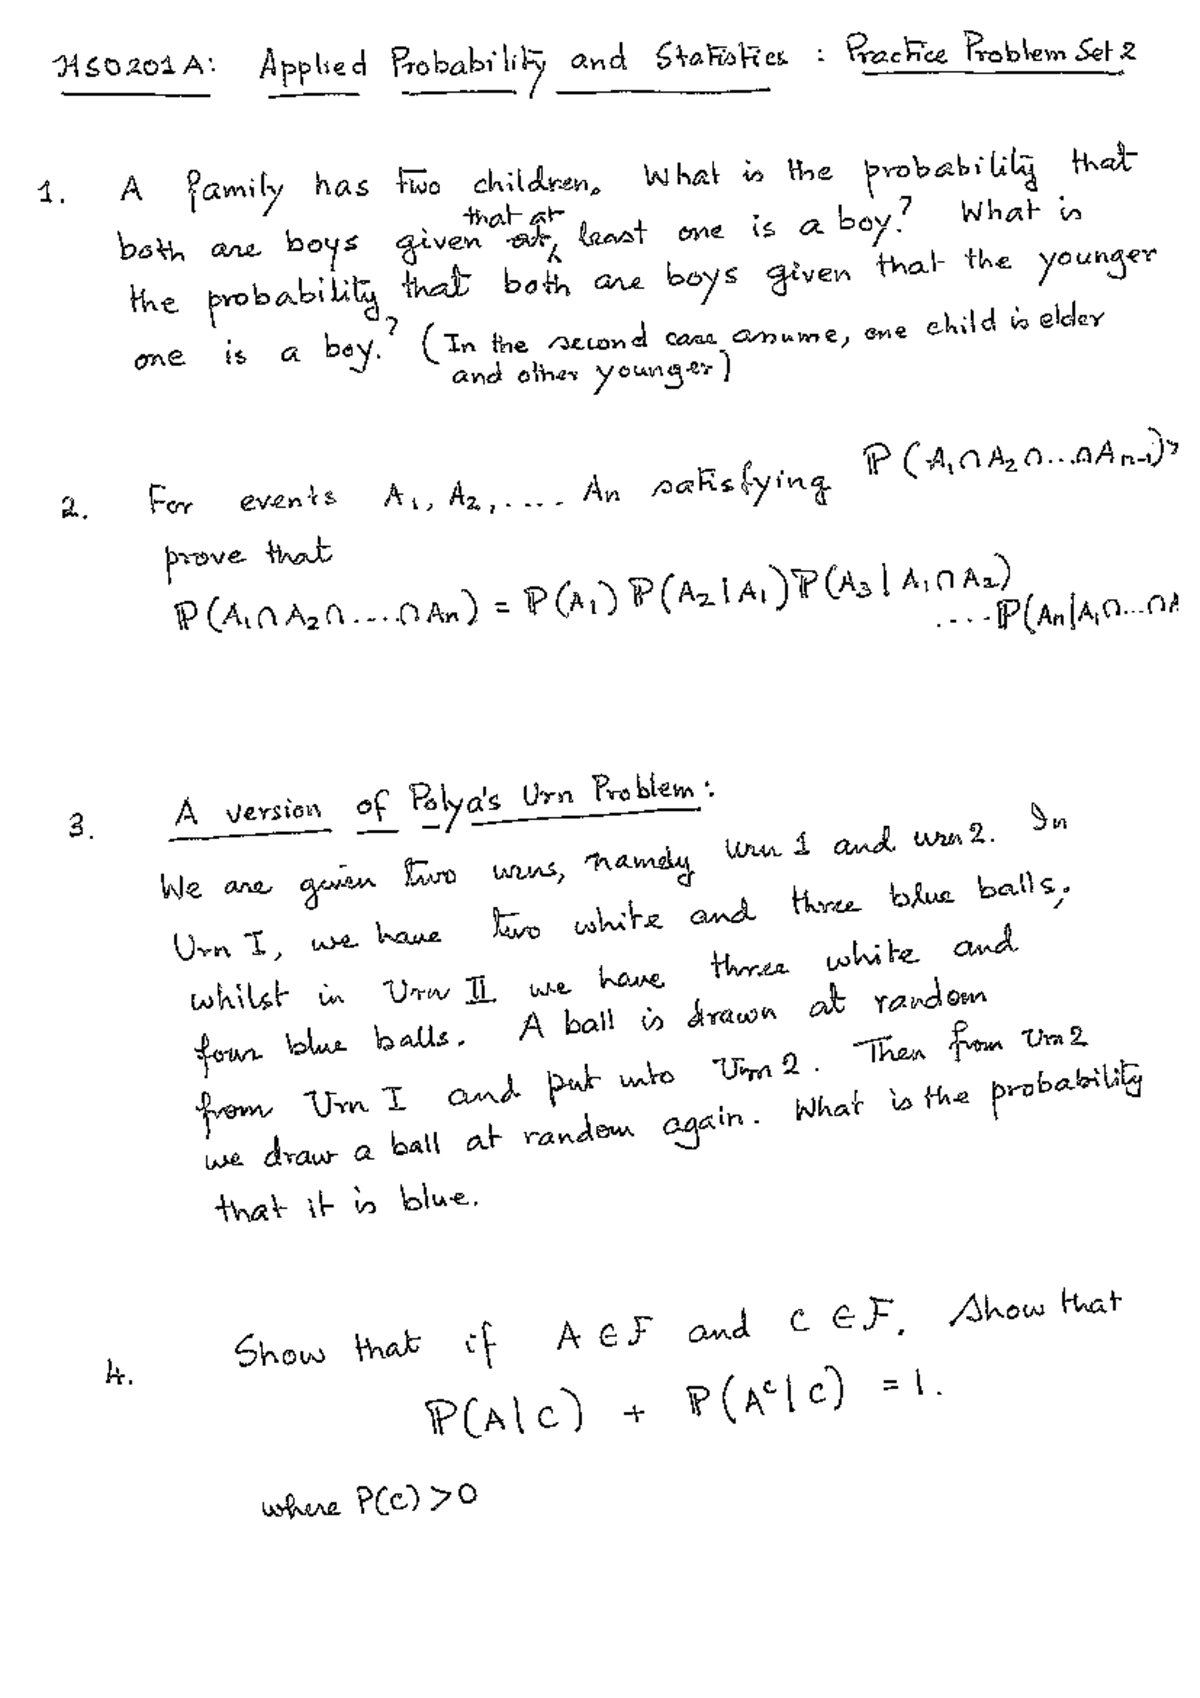 HSO201A: Applied Probability and Statistics : Practice Problem Set 2
1. A family has two children. What is the probability that
that at
both are boys given least one is a boy? What is
the probability that both are boys given that the younger
one is a boy.? (In the second case assume, one child is elder
and other younger)
2. For events A₁, A₂, .... An satisfying ℙ(A₁∩A₂∩...∩An-1)>
prove that
ℙ(A₁∩A₂∩....∩An) = ℙ(A₁) ℙ(A₂|A₁)ℙ(A₃|A₁∩A₂)
....ℙ(An|A₁∩...∩A
3. A version of Polya's Urn Problem:
We are given two urns, namely urn 1 and urn 2. In
Urn I, we have two white and three blue balls,
whilst in Urn II we have three white and
four blue balls. A ball is drawn at random
from Urn I and put into Urn 2. Then from Urn 2
we draw a ball at random again. What is the probability
that it is blue.
4. Show that if A ∈ F and C ∈ F. Show that
ℙ(A|C) + ℙ(Aᶜ|C) = 1.
where P(C) > 0